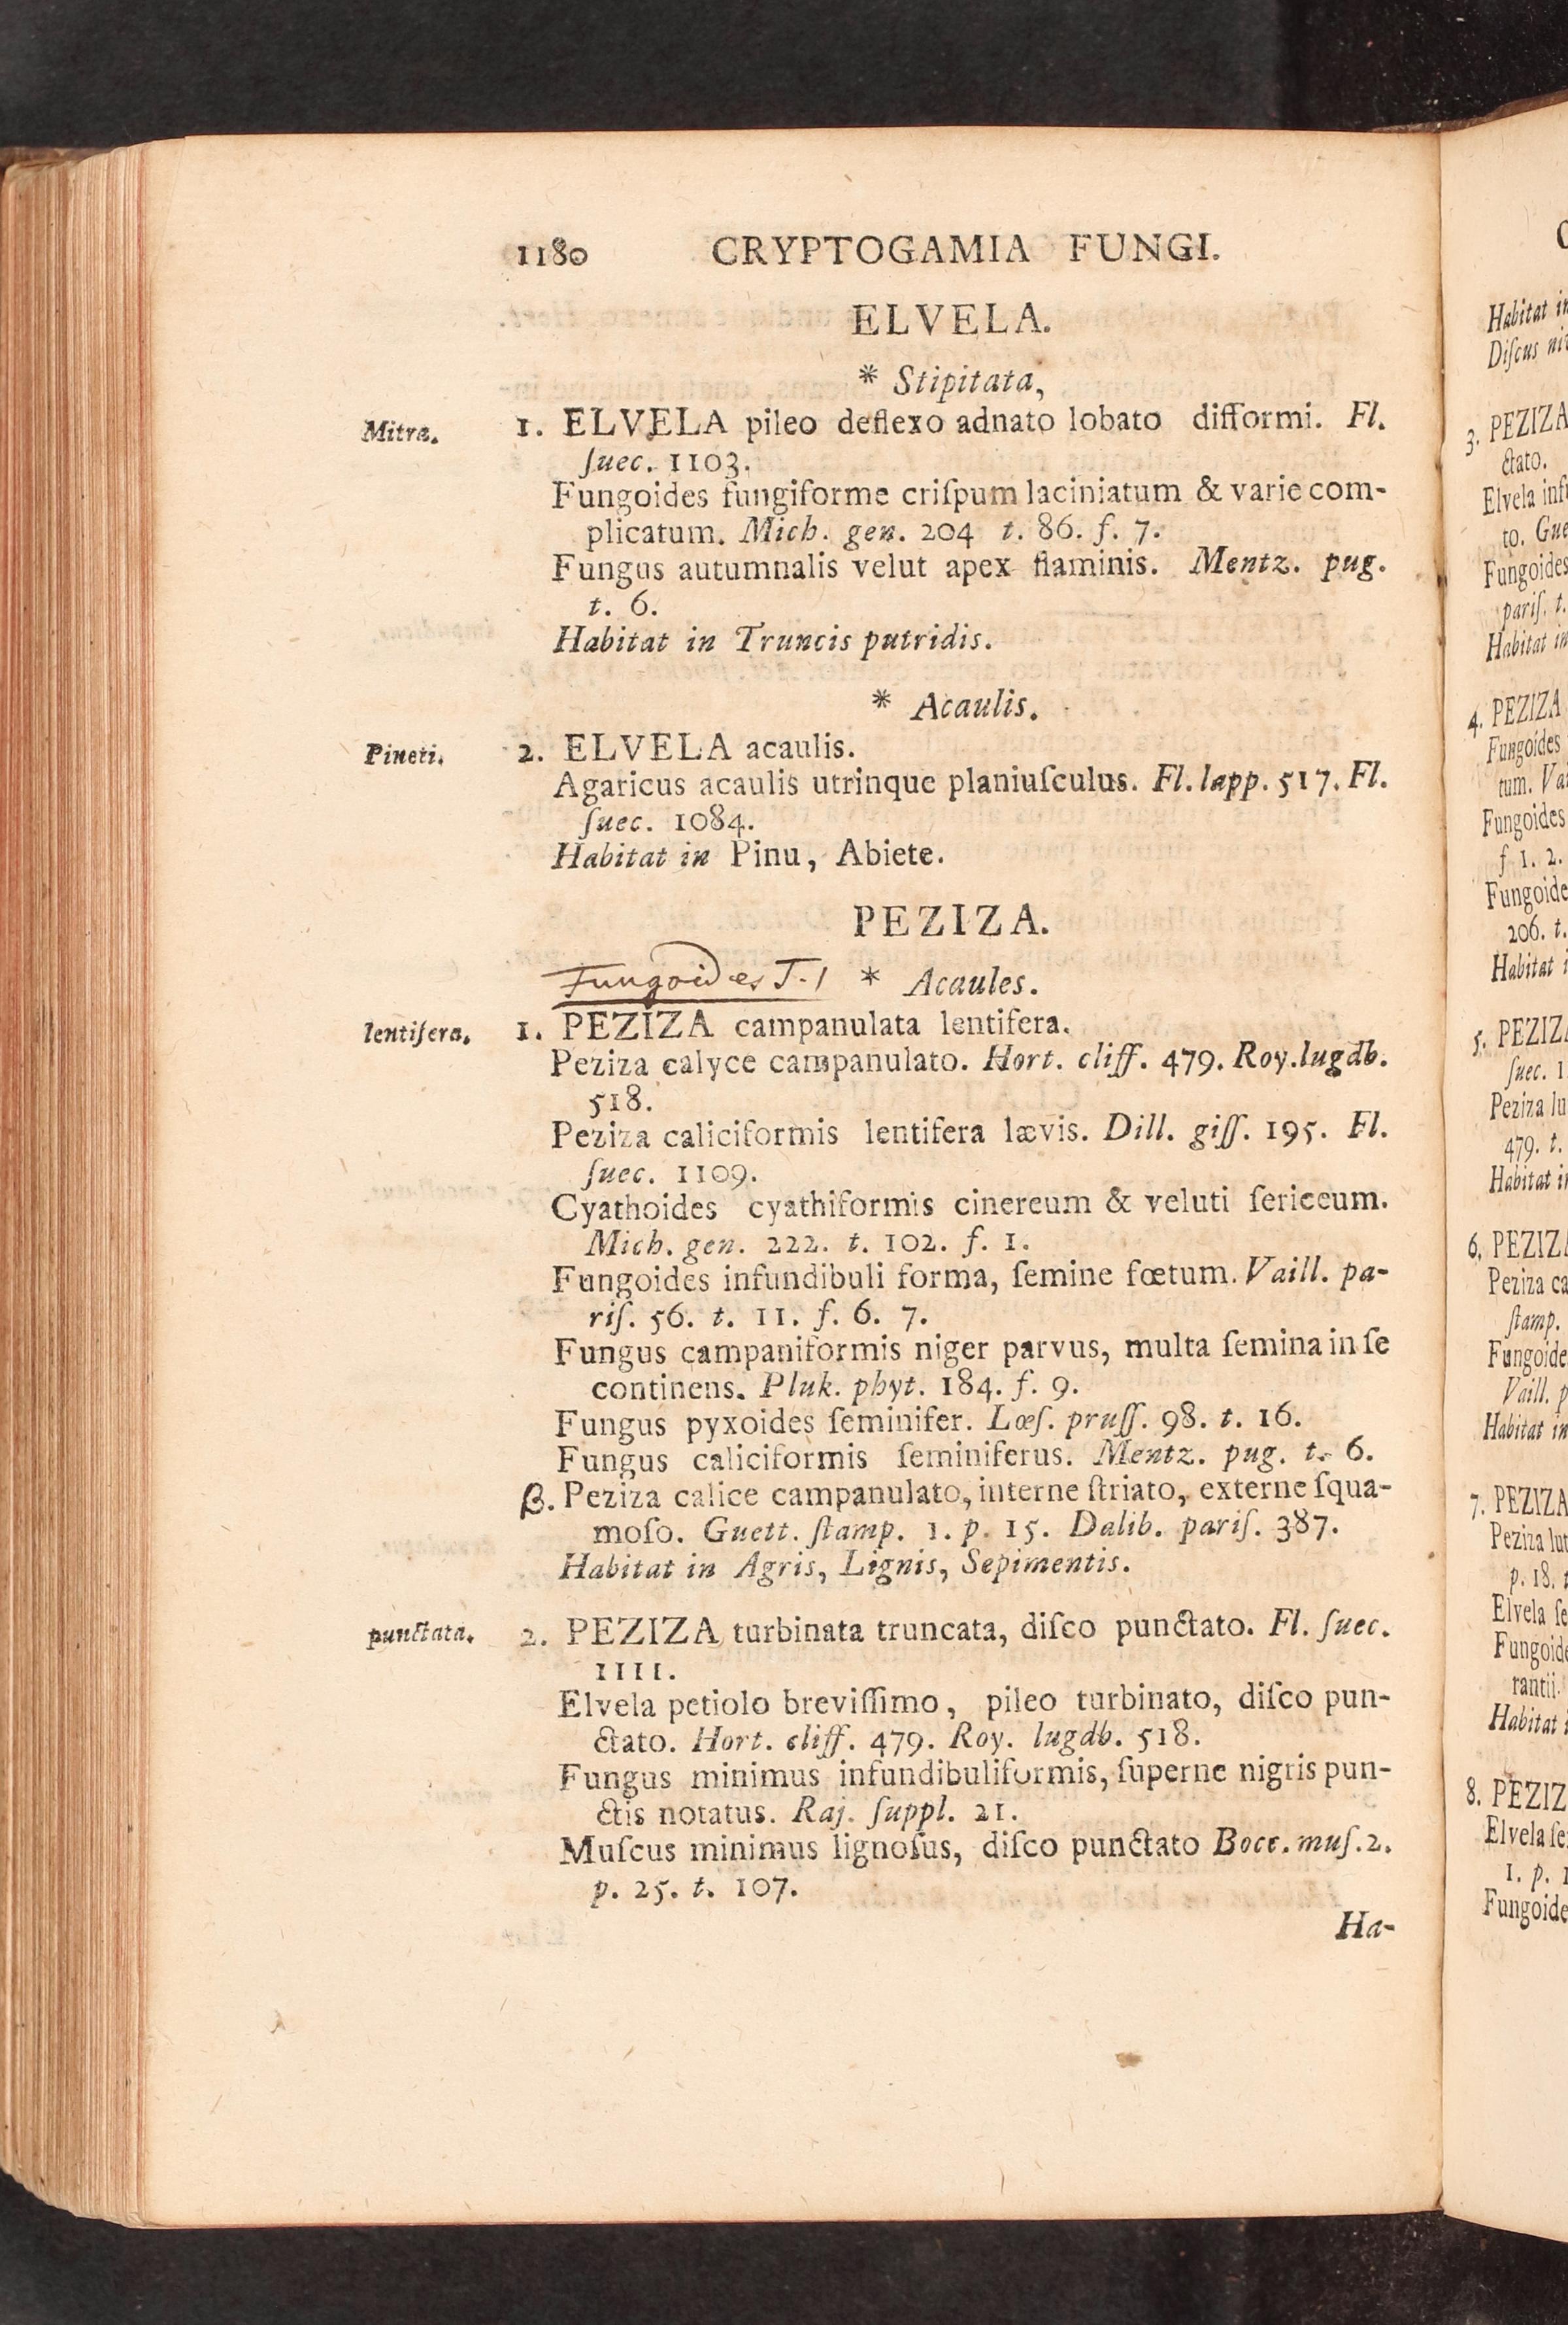 1180 CRYPTOGAMIA FUNGI.
ELVELA.
* Stipitata,
Mitra. 1. ELVELA pileo deflexo adnato lobato difformi. Fl.
ſuec. 1103.
Fungoides fungiforme criſpum laciniatum & varie com-
plicatum. Mich. gen. 204 t. 86. f. 7.
Fungus autumnalis velut apex ſtaminis. Mentz. pug.
t. 6.
Habitat in Truncis putridis.
* Acaulis.
Pineti. 2. ELVELA acaulis.
Agaricus acaulis utrinque planiuſculus. Fl. lapp. 517. Fl.
ſuec. 1084.
Habitat in Pinu, Abiete.
PEZIZA.
Fungoides T. * Acaules.
lentifera. 1. PEZIZA campanulata lentifera.
Peziza calyce campanulato. Hort. cliff. 479. Roy. lugdb.
518.
Peziza caliciformis lentifera lævis. Dill. giſſ. 195. Fl.
ſuec. 1109.
Cyathoides cyathiformis cinereum & veluti ſericeum.
Mich. gen. 222. t. 102. f. 1.
Fungoides infundibuli forma, ſemine fœtum. Vaill. pa-
riſ. 56. t. 11. f. 6. 7.
Fungus campaniformis niger parvus, multa ſemina in ſe
continens. Pluk. phyt. 184. f. 9.
Fungus pyxoides ſeminifer. Lœſ. pruſſ. 98. t. 16.
Fungus caliciformis ſeminiferus. Mentz. pug. t. 6.
β. Peziza calice campanulato, interne ſtriato, externe ſqua-
moſo. Guett. ſtamp. 1. p. 15. Dalib. pariſ. 387.
Habitat in Agris, Lignis, Sepimentis.
punctata. 2. PEZIZA turbinata truncata, diſco punctato. Fl. ſuec.
1111.
Elvela petiolo breviſſimo, pileo turbinato, diſco pun-
ctato. Hort. cliff. 479. Roy. lugdb. 518.
Fungus minimus infundibuliformis, ſuperne nigris pun-
ctis notatus. Raj. ſuppl. 21.
Muſcus minimus lignoſus, diſco punctato Bocc. muſ. 2.
p. 25. t. 107.
Ha-
Habitat
Diſcus
3. PEZIZA
ctato.
Elvela
to.
Fungoides
pariſ. t.
Habitat
4. PEZIZA
Fungoides
tum.
Fungoides
f 1. 2.
206. t.
Habitat
5.
ſuec.
Peziza
479. t.
Habitat
6.
Peziza
ſtamp.
Vaill.
Habitat
7. PEZIZA
Peziza
p. 18.
Elvela
rantii.
Habitat
8.
Elvela
1. p.